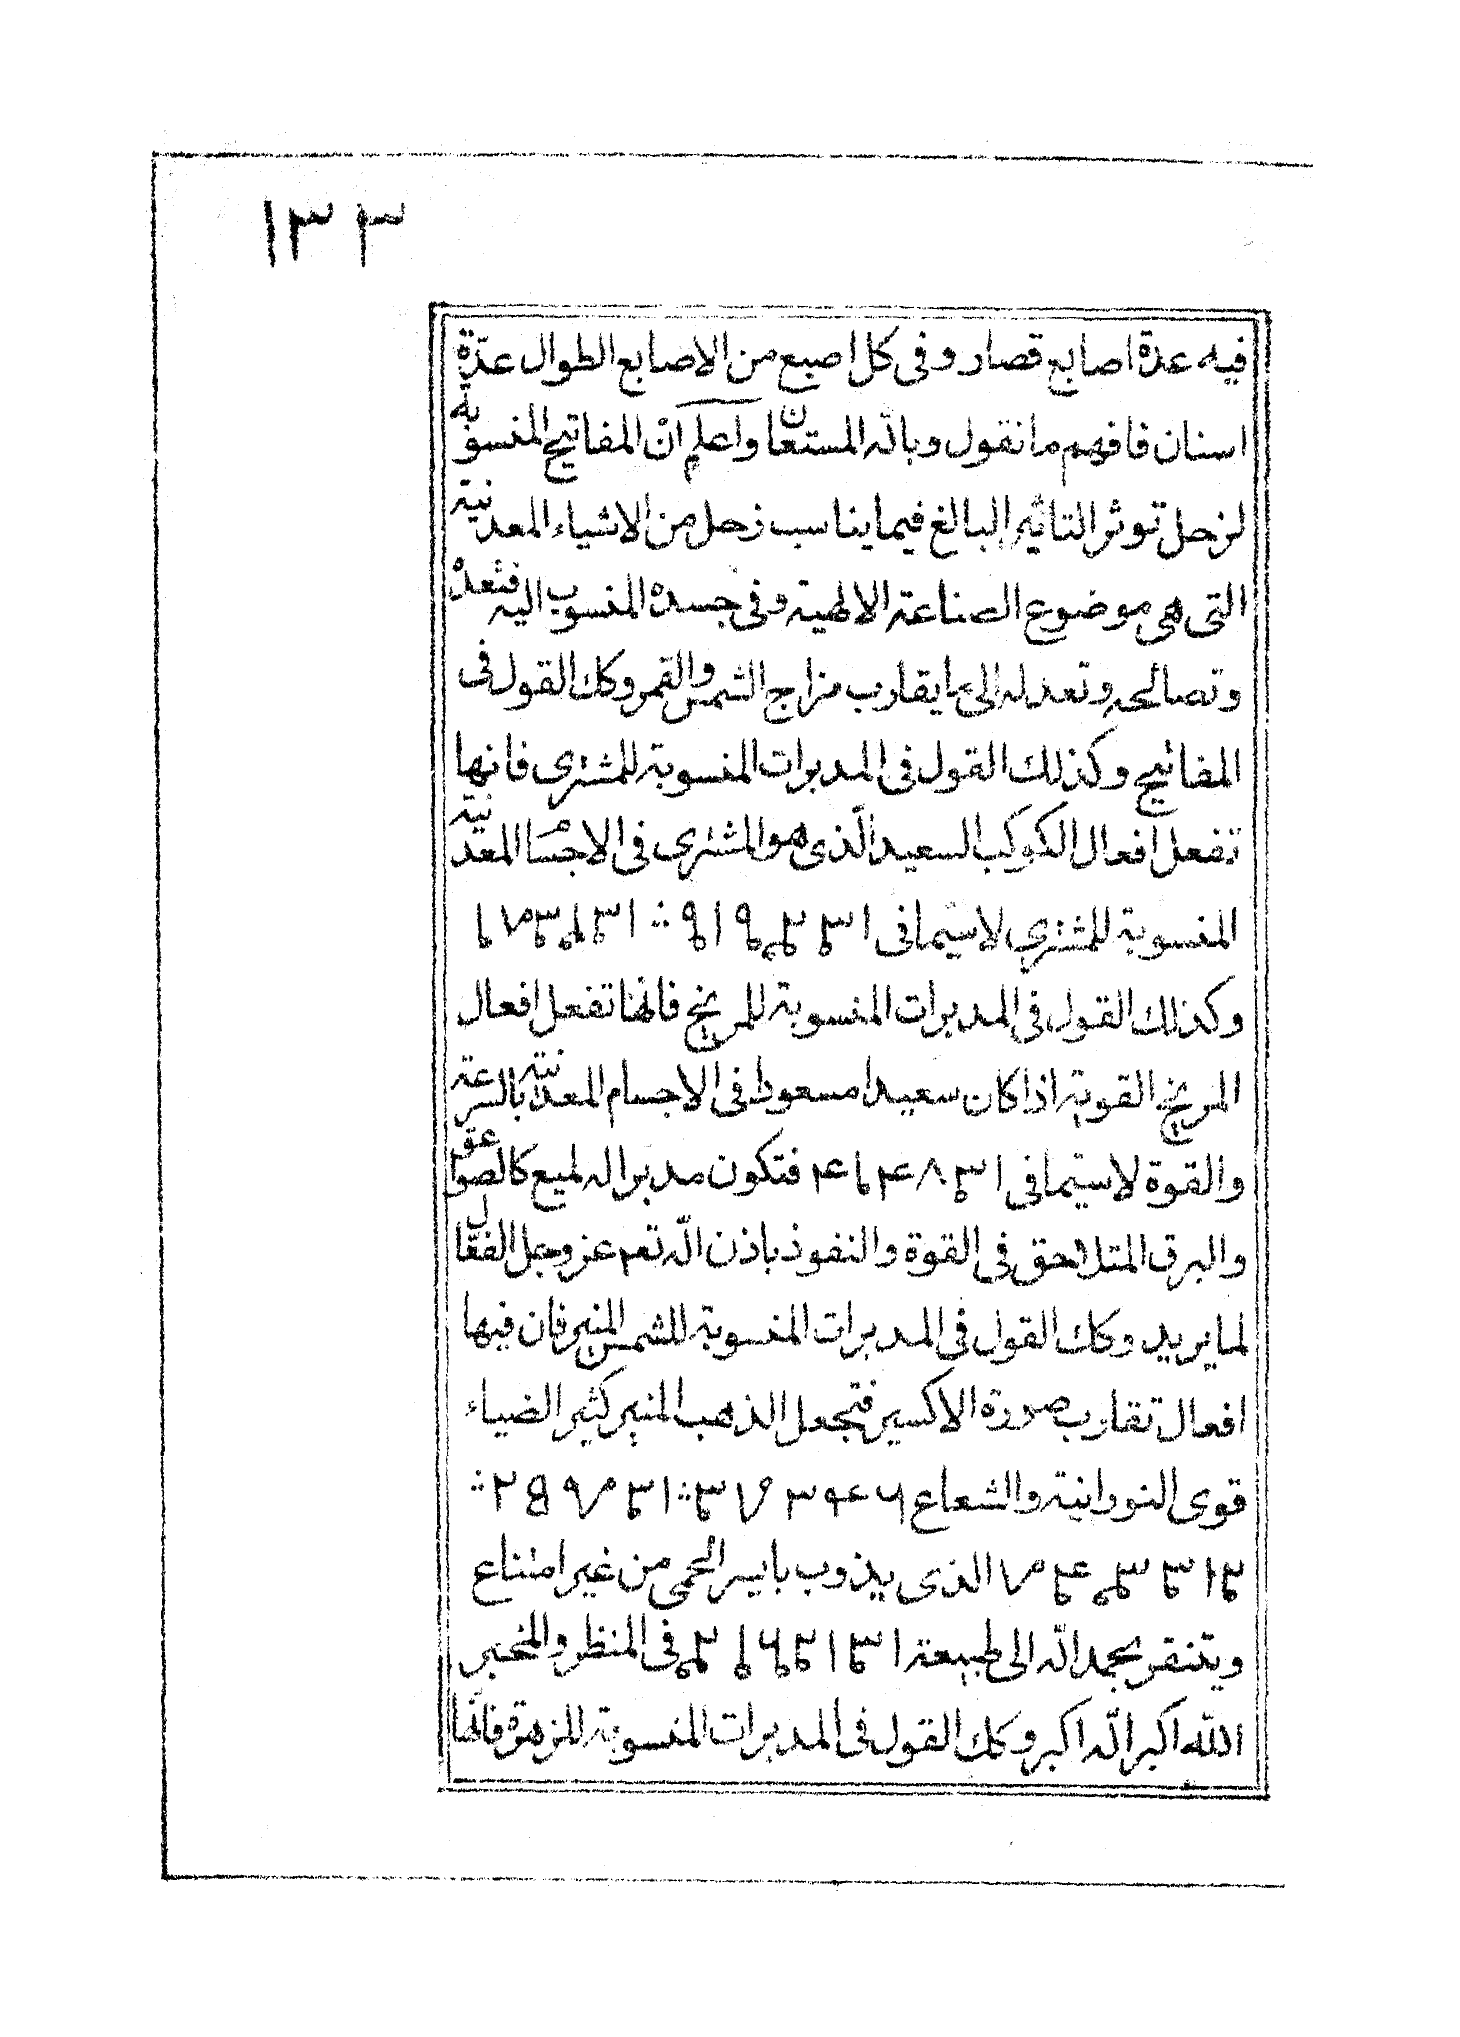 ١٣٣
فيه عدة اصابع قصار وفى كل اصبع من الاصابع الطوال عدّة
اسنان فافهم ما نقول وبالله المستعان واعلم انّ المفاتيح المنسوبة
لزحل توثر التاثير البالغ فيما يناسب زحل من الاشياء المعدنية
التى هى موضوع الصناعة الالهية وفى جسده المنسوب اليه فتعدّ
وتصالحه وتعدله الى ما يقارب مزاج الشمس والقمر وكك القول فى
المفاتيح وكذلك القول فى المدبرات المنسوبة للمشترى فانها
تفعل افعال الكوكب السعيد الّذى هو المشترى فى الاجسام المعدنية
المنسوبة للمشترى لاسيّما فى
وكذلك القول فى المدبرات المنسوبة للمريخ فانها تفعل افعال
المريخ القوية اذا كان سعيدا مسعودا فى الاجسام المعدنية بالسرعة
والقوة لاسيّما فى فتكون مدبراله لميع كالصواعق
والبرق المتلاحق فى القوة والنفوذ باذن الله تعم عز وجل الفعّال
لما يريد وكك القول فى المدبرات المنسوبة للشمس المنير فان فيها
افعال تقارب صورة الاكسير فتجعل الذهب المنير كثير الضياء
قوى النورانية والشعاع
الذى يذوب بايسر الحمى من غير امتناع
بحمد الله الى طبيعة فى المنظر والمخبر
الله اكبر الله اكبر وكك القول فى المدبرات المنسوبة للزهرة فانّها